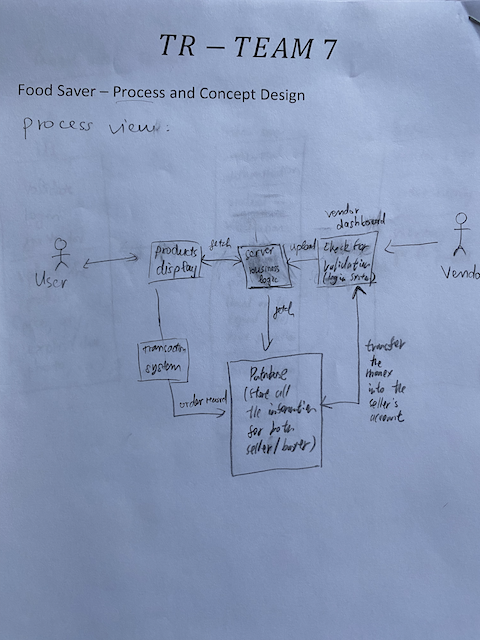 TR – TEAM 7
Food Saver – Process and Concept Design
process view:
User
products
display
fetch
server
business
logic
upload
vendor
dashboard
check for
validation
(login system)
Vendo
fetch
transaction
system
order record
Database
(store all
the information
for both
seller/buyer)
transfer
the
money
into the
seller's
account